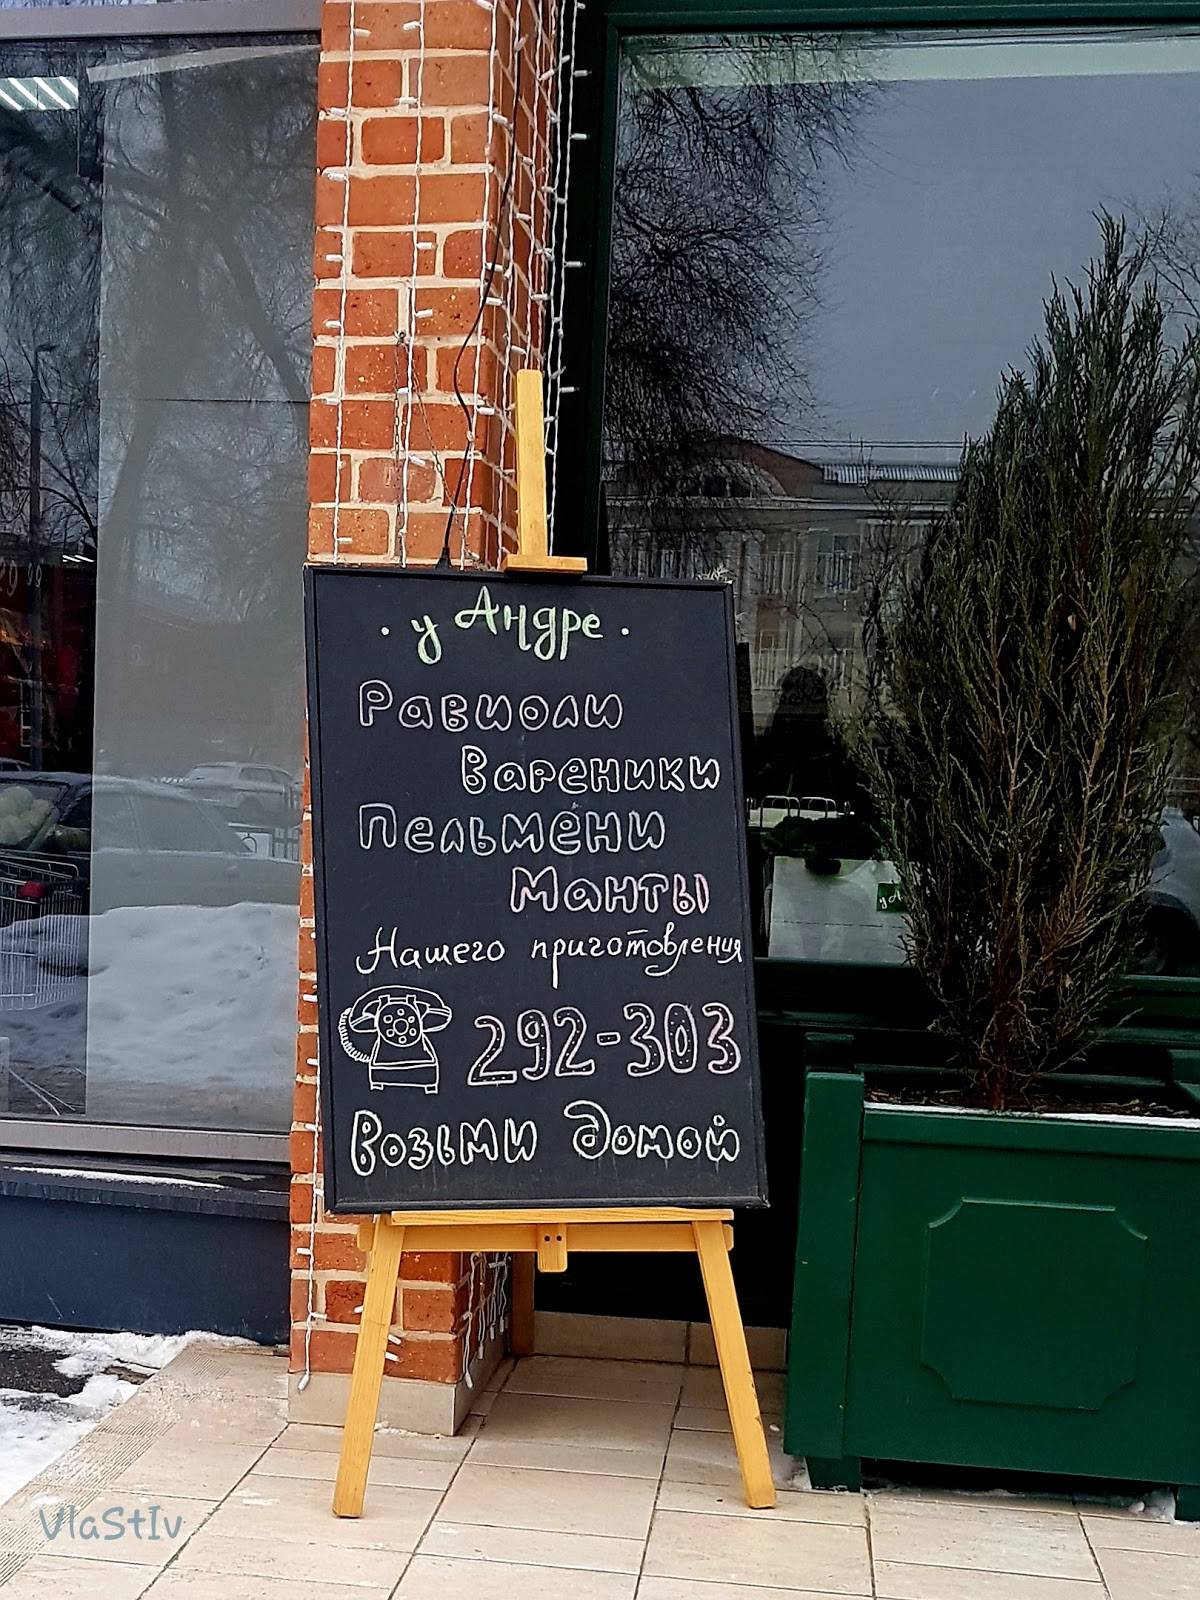 • у Андре •
Равиоли
Вареники
Пельмени
Манты
Нашего приготовления
292-303
Возьми домой
у А
VlaStIv